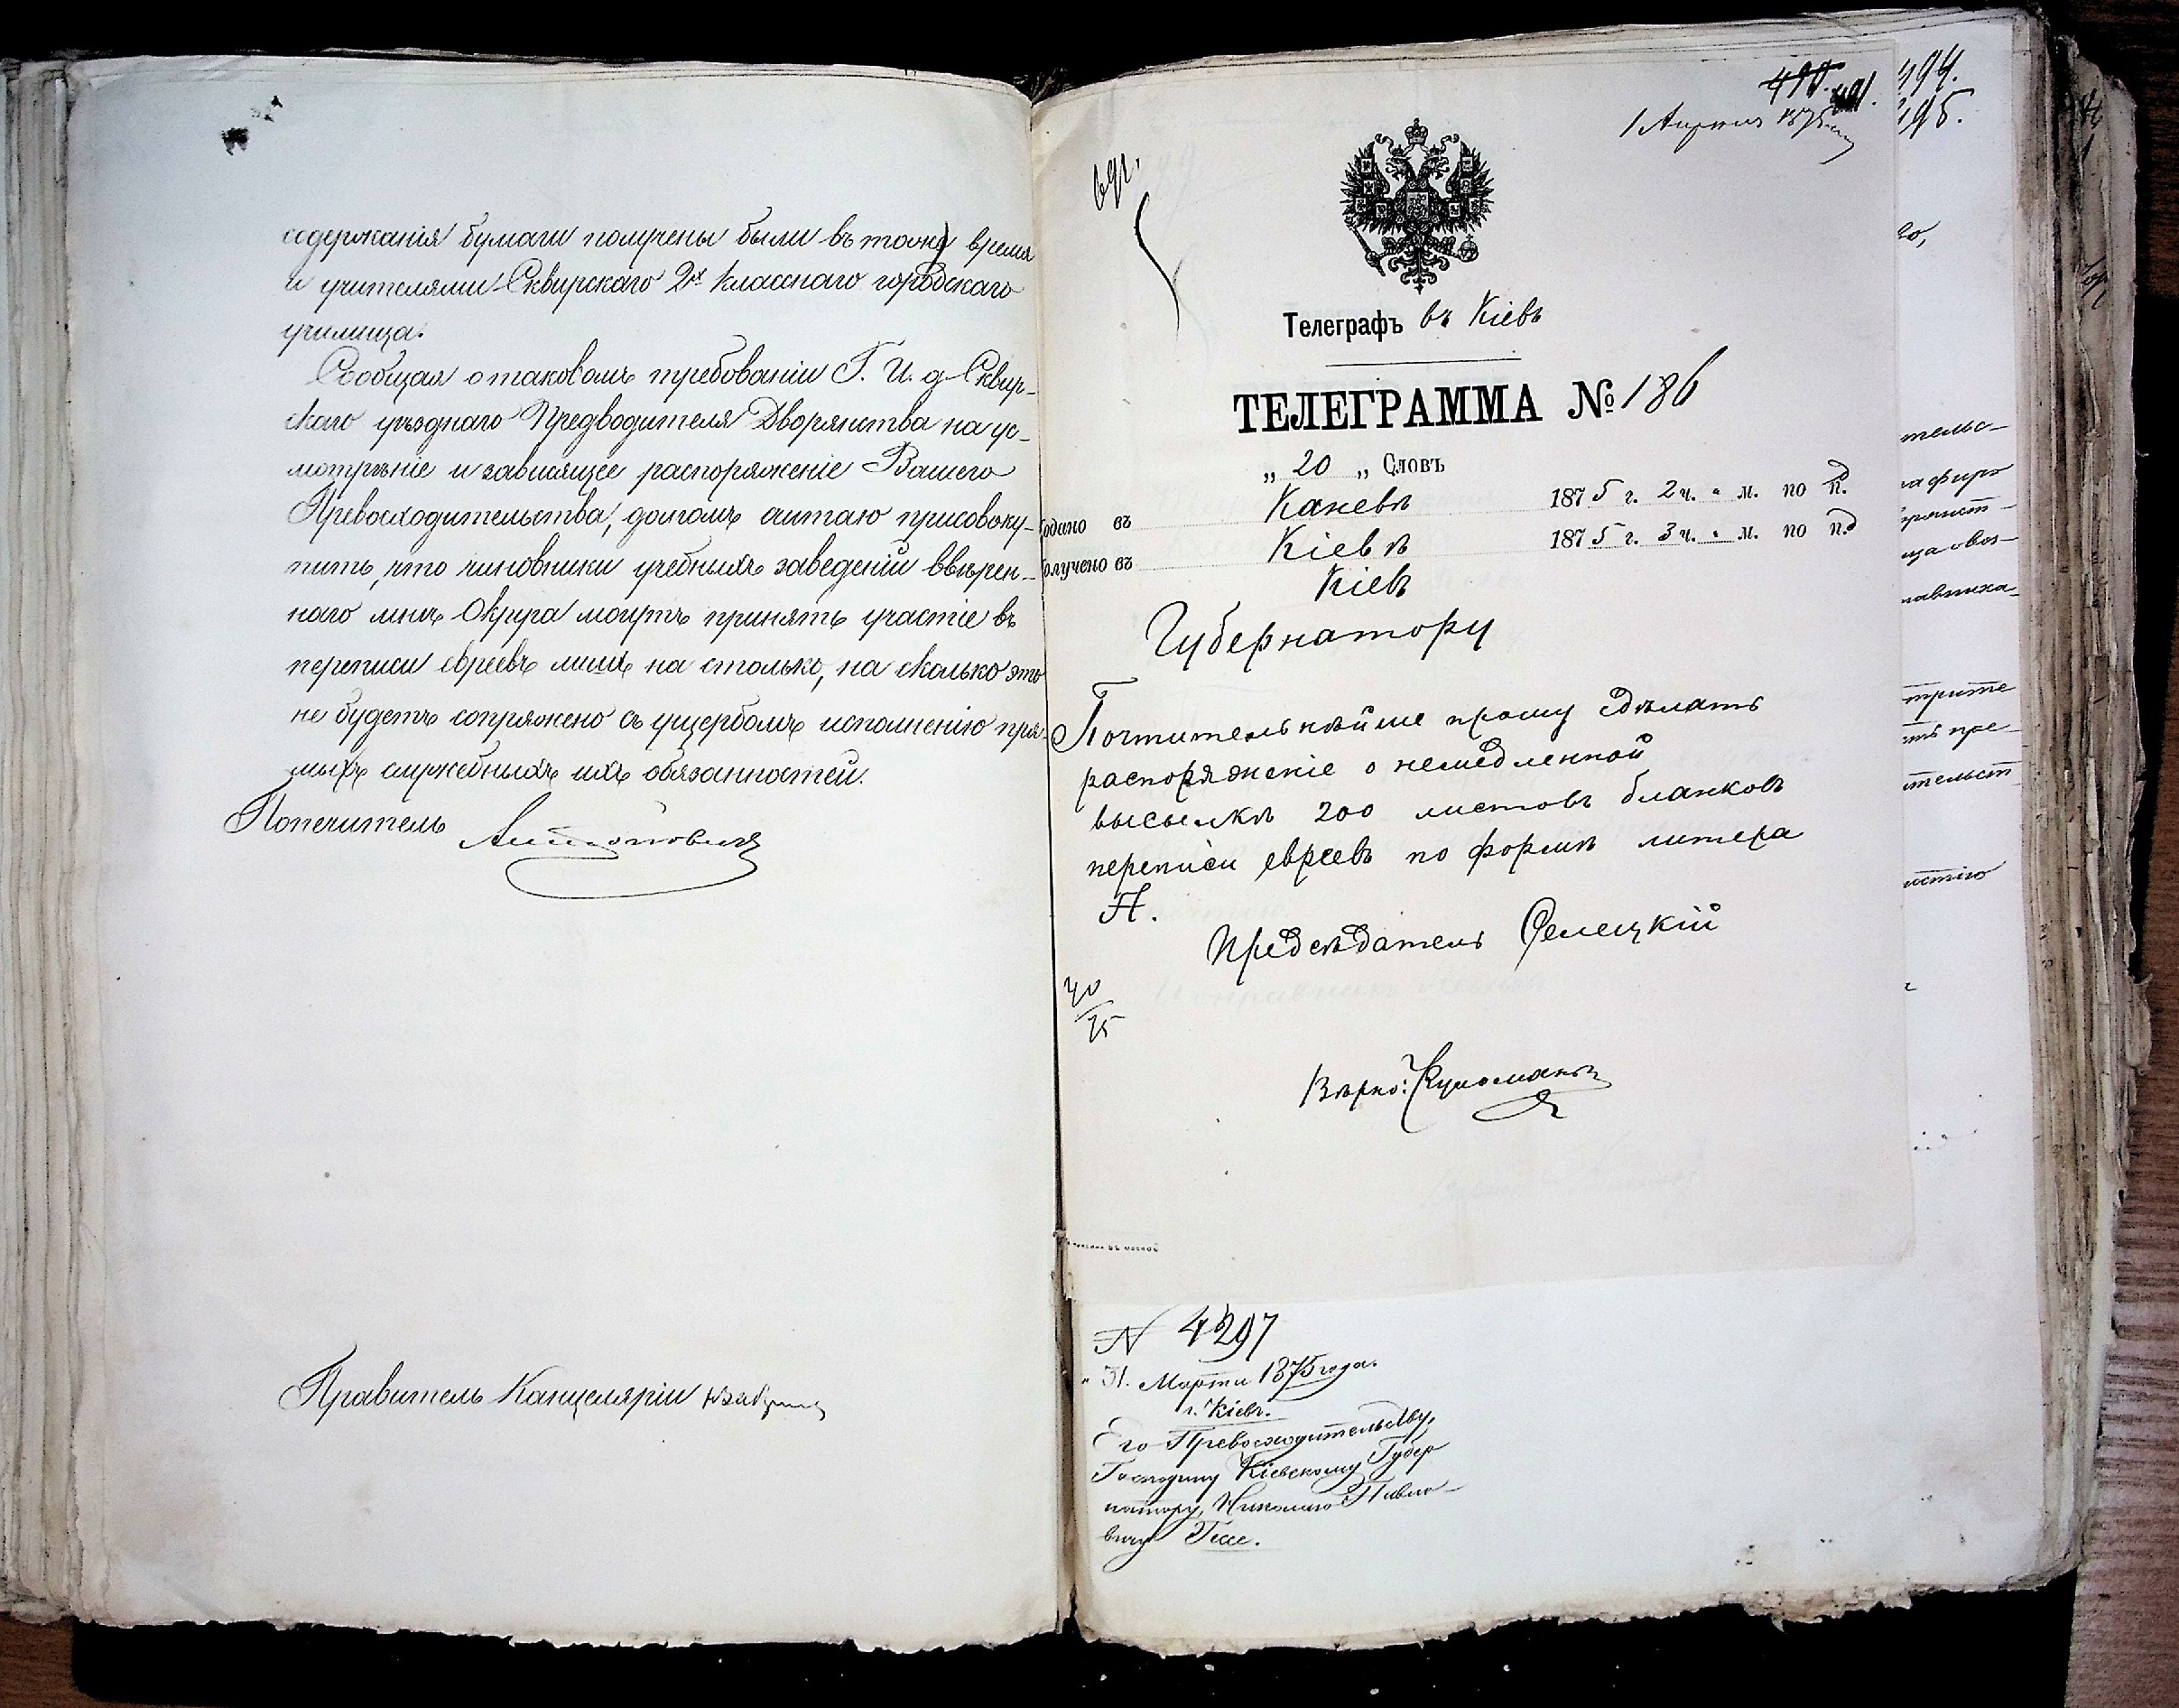 содержанія бумаги получены были въ тоже время
и учителями Сквирскаго 2хъ класснаго городскаго
училища.
Сообщая о таковомъ требованіи Г. И. д. Сквир-
скаго уѣзднаго Предводителя Дворянства на ус-
мотрѣніе и зависящее распоряженіе Вашего
Превосходительства, долгомъ считаю присовоку-
пить, что чиновники учебныхъ заведеній ввѣрен-
наго мнѣ Округа могутъ принять участіе въ
переписи евреевъ лишь на столько, на сколько это
не будетъ сопряжено съ ущербомъ исполненію пря-
мыхъ служебныхъ ихъ обязанностей.
Попечитель Антоновичъ
Правитель Канцеляріи
490. 491.
1 Апрѣля 1875
691.
Телеграфъ въ Кіевѣ
ТЕЛЕГРАММА № 186
„ 20 „ Словъ
одано въ Каневѣ 1875 г. 2 ч. " м. по п. д
олучено въ Кіевѣ 1875 г. 3 ч. " м. по п. д
Кіевъ
Губернатору
Почтительнѣйше прошу сдѣлать
распоряженіе о немедленной
высылкѣ 200 листовъ бланковъ
переписи евреевъ по формѣ литера
А.
Предсѣдатель Селецкій
40
75
Вѣрно:
N 4297
„ 31. Марта 1875 года.
г. Кіевъ.
Его Превосходительству,
Господину Кіевскому Губер
натору, Николаю Павло-
вичу Гессе.
494.
495.
го,
тельс-
трите
тельст